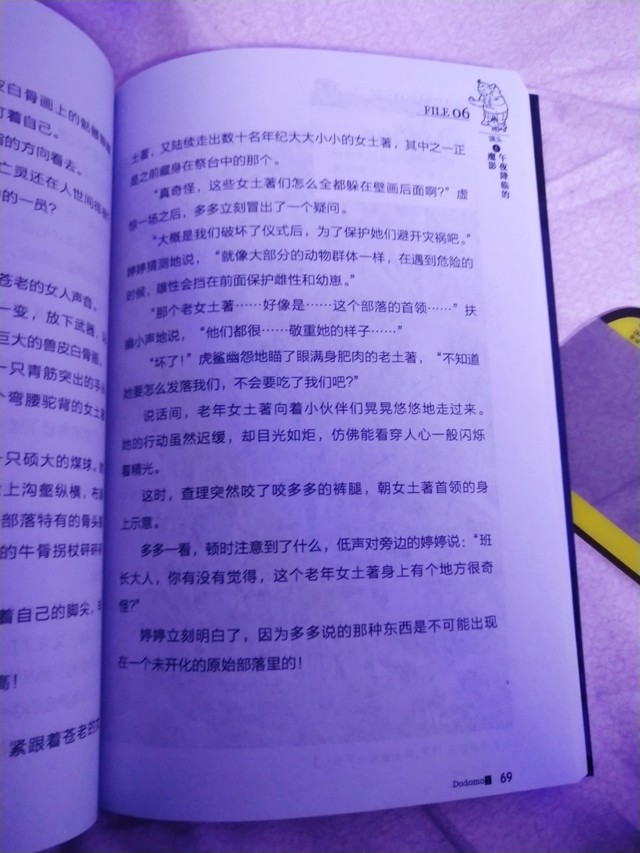 皮白骨画上的骷髅
盯着自己。
的方向看去。
亡灵还在人世间徘徊
的一员？
苍老的女人声音。
一变，放下武器，
巨大的兽皮白骨画
一只青筋突出的手
个弯腰驼背的女土著
一只硕大的煤球。
上沟壑纵横，布满
部落特有的骨头
的牛骨拐杖砰砰
着自己的脚尖，
紧跟着苍老的
FILE 06
镜头
6
午夜降临的
魔影
土著，又陆续走出数十名年纪大大小小的女土著，其中之一正
是之前藏身在祭台中的那个。
“真奇怪，这些女土著们怎么全都躲在壁画后面啊？”虚
惊一场之后，多多立刻冒出了一个疑问。
“大概是我们破坏了仪式后，为了保护她们避开灾祸吧。”
婷婷猜测地说，“就像大部分的动物群体一样，在遇到危险的
时候，雄性会挡在前面保护雌性和幼崽。”
“那个老女土著……好像是……这个部落的首领……”扶
幽小声地说，“他们都很……敬重她的样子……”
“坏了！”虎鲨幽怨地瞄了眼满身肥肉的老土著，“不知道
她要怎么发落我们，不会要吃了我们吧？”
说话间，老年女土著向着小伙伴们晃晃悠悠地走过来。
她的行动虽然迟缓，却目光如炬，仿佛能看穿人心一般闪烁
着精光。
这时，查理突然咬了咬多多的裤腿，朝女土著首领的身
上示意。
多多一看，顿时注意到了什么，低声对旁边的婷婷说：“班
长大人，你有没有觉得，这个老年女土著身上有个地方很奇
怪？”
婷婷立刻明白了，因为多多说的那种东西是不可能出现
在一个未开化的原始部落里的！
Dodomo 69